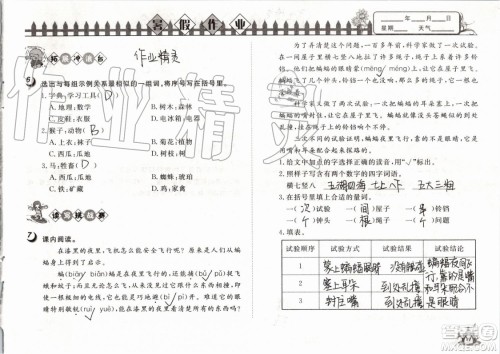 暑假作业
____年__月__日
星期____ 天气____
作业精灵
5 选出与每组示例关系最相似的一组词,将序号写在括号里。
1.字典,学习工具( D )
A.字典,书本 B.树木,花草
C.书桌,书柜 D.电冰箱,电器
2.猴子,动物( B )
A.上衣,衣裤 B.菊花,植物
C.西瓜,瓜地 D.树木,树根
3.马,牲畜( )
A.西瓜,瓜地 B.蜘蛛,琥珀
C.铁,矿藏 D.电灯,电线
7 课内阅读。
在漆黑的夜里,飞机怎么能安全飞行呢?原来是人们从蝙蝠
身上得到了启示。
蝙(biān biǎn)蝠是在夜里飞行的,还能捕(bǔ pǔ)捉飞蛾
和蚊子;而且无论怎么飞,从来没见过它跟什么东西相撞,即使
一根极细的电线,它也能灵巧地避(bì pì)开。难道它的眼睛
特别敏锐(ruì yuè),能在漆黑的夜里看清楚所有的东西吗?
为了弄清楚这个问题,一百多年前,科学家做了一次试验。
在一间屋子里横七竖八地拉了许多绳子,绳子上系着许多铃
铛,他们把蝙蝠的眼睛蒙(méng mēng)上,让它在屋子里飞。
蝙蝠飞了几个钟头,铃铛一个也没响,那么多的绳子,它一根也
没碰着。
科学家又做了两次试验:一次把蝙蝠的耳朵塞上,一次把
蝙蝠的嘴封住,让它在屋子里飞。蝙蝠就像没头苍蝇似的到处
乱撞,挂在绳子上的铃铛响个不停。
三次不同的试验证明,蝙蝠夜里飞行,靠的不是眼睛,它是
用嘴和耳朵配合起来探路的。
1.给文中加点的字选择正确的读音,用“√”画出。
2.照样子,写含有两个数字的四字词语。
横七竖八 五湖四海 七上八下 五大三粗
3.在括号里填上合适的量词。
一(次)试验 一(间)屋子 一(串)铃铛
一(个)钟头 一(根)绳子 一(个)问题
4.填表。
试验顺序 试验方式 试验结果 试验结论
1 蒙上蝙蝠眼睛 没有触碰
2 塞上耳朵 到处乱撞
3 封住嘴 到处乱撞